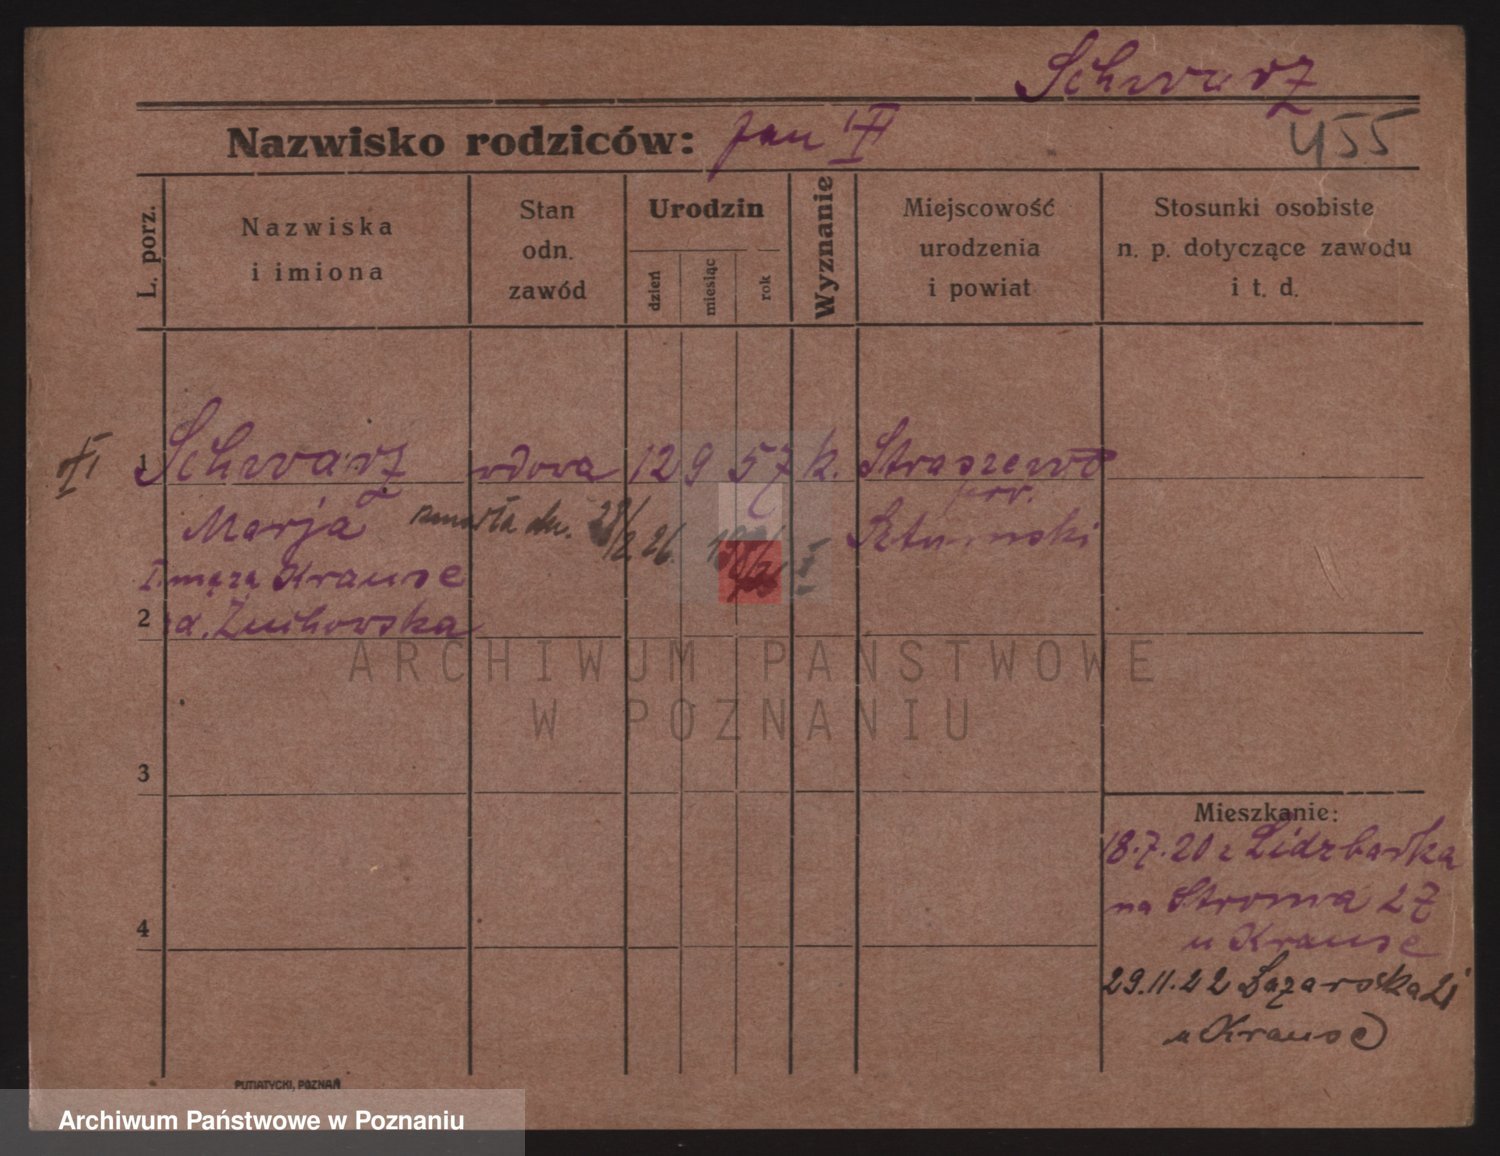 Schwarz
Nazwisko rodziców: Jan
455
L. porz.
Nazwiska
i imiona
Stan
odn.
zawód
Urodzin
dzień
miesiąc
rok
Wyznanie
Miejscowość
urodzenia
i powiat
Stosunki osobiste
n. p. dotyczące zawodu
i t. d.
1 Schwarz wdowa 12 9 57 k. Straszewo
Marja zmarła dn.
I męża Krause
2 Żuchowska
3
4
Mieszkanie:
18.7.20 z Lidzbarka
na Stroma 27
u Krause
29.11.22 Łazarska
u Krause
PUTIATYCKI, POZNAŃ
ARCHIWUM PAŃSTWOWE
W POZNANIU
Archiwum Państwowe w Poznaniu